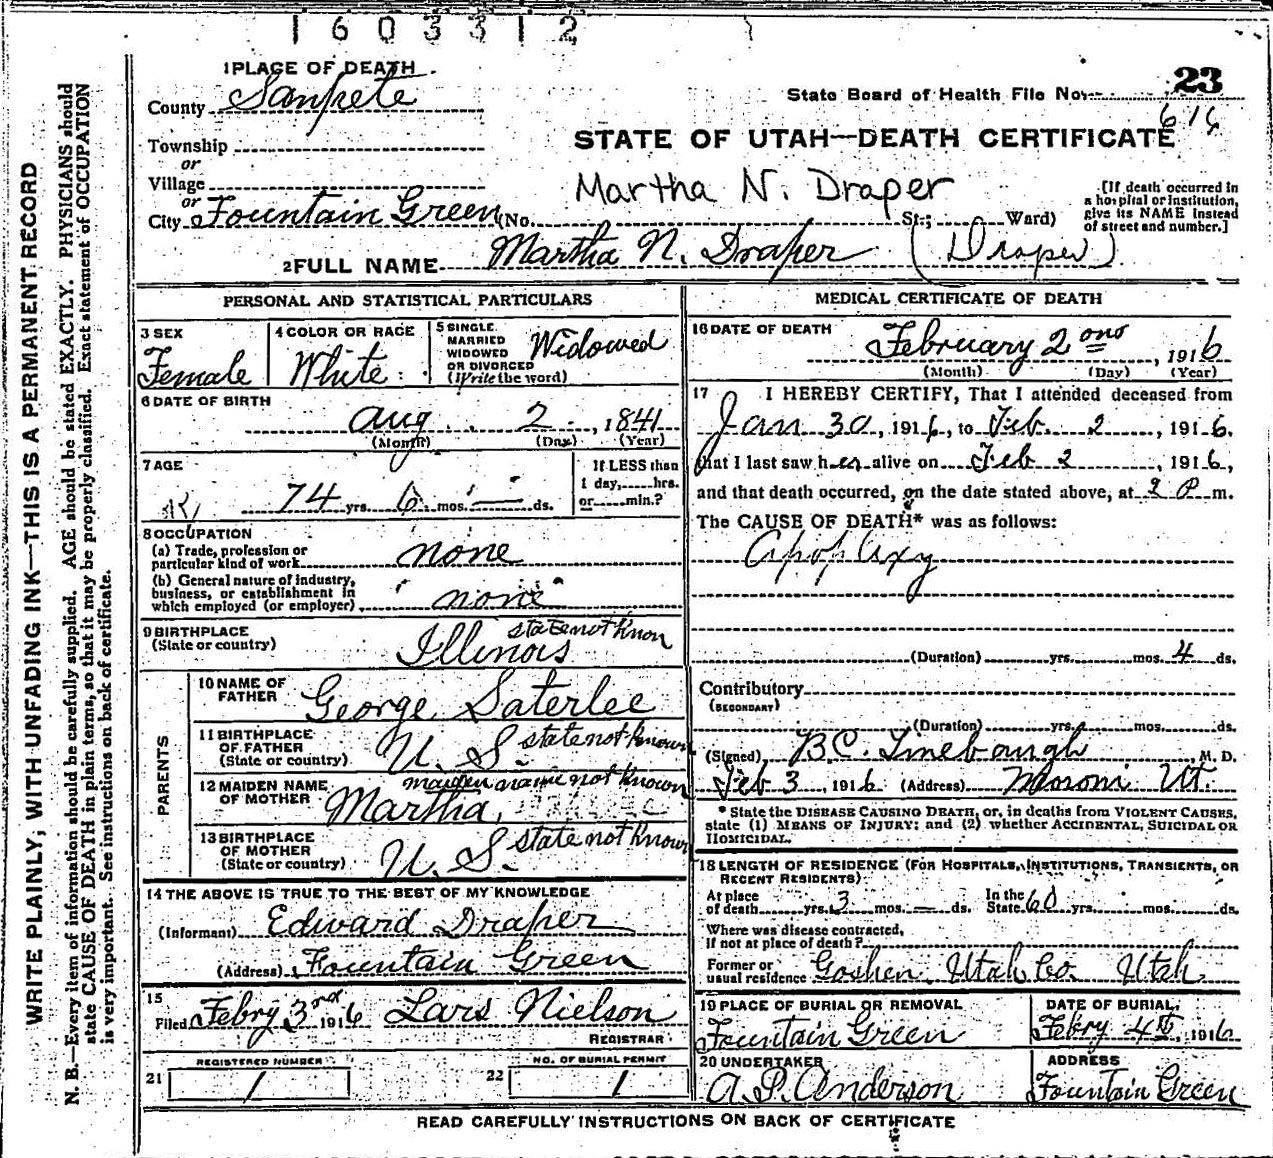 1603312
1 PLACE OF DEATH
County Sanpete
23
State Board of Health File No.
616
Township
or
Village
or
City Fountain Green (No. St.; Ward)
STATE OF UTAH—DEATH CERTIFICATE
Martha N. Draper
[If death occurred in
a hospital or institution,
give its NAME instead
of street and number.]
2 FULL NAME Martha N. Draper (Draper)
PERSONAL AND STATISTICAL PARTICULARS
3 SEX
Female
4 COLOR OR RACE
White
5 SINGLE
MARRIED
WIDOWED
OR DIVORCED
(Write the word)
Widowed
6 DATE OF BIRTH
Aug 2, 1841
(Month) (Day) (Year)
7 AGE
74 yrs. 6 mos. — ds.
If LESS than
1 day, hrs.
or min.?
8 OCCUPATION
(a) Trade, profession or
particular kind of work none
(b) General nature of industry,
business, or establishment in
which employed (or employer) none
9 BIRTHPLACE
(State or country)
state not Know
Illinois
PARENTS
10 NAME OF
FATHER George Saterlee
11 BIRTHPLACE
OF FATHER
(State or country) U. S. state not known
12 MAIDEN NAME
OF MOTHER
maiden name not known
Martha,
13 BIRTHPLACE
OF MOTHER
(State or country) U. S. state not known
14 THE ABOVE IS TRUE TO THE BEST OF MY KNOWLEDGE
(Informant) Edward Draper
(Address) Fountain Green
15
Filed Febry 3rd 1916 Lars Nielson
REGISTRAR
REGISTERED NUMBER
21 1
NO. OF BURIAL PERMIT
22 1
MEDICAL CERTIFICATE OF DEATH
16 DATE OF DEATH
February 2ond, 1916
(Month) (Day) (Year)
17 I HEREBY CERTIFY, That I attended deceased from
Jan 30, 1916, to Feb. 2, 1916.
that I last saw her alive on Feb 2, 1916,
and that death occurred, on the date stated above, at 2 P m.
The CAUSE OF DEATH* was as follows:
Apoplaxy
(Duration) yrs. mos. 4 ds.
Contributory
(SECONDARY)
(Duration) yrs. mos. ds.
(Signed) B.C. Linebaugh M. D.
Feb 3, 1916 (Address) Moroni Ut.
* State the DISEASE CAUSING DEATH, or, in deaths from VIOLENT CAUSES,
state (1) MEANS OF INJURY; and (2) whether ACCIDENTAL, SUICIDAL OR
HOMICIDAL.
18 LENGTH OF RESIDENCE (FOR HOSPITALS, INSTITUTIONS, TRANSIENTS, OR
RECENT RESIDENTS)
At place
of death yrs. 3 mos. — ds.
In the
State 60 yrs. mos. ds.
Where was disease contracted,
if not at place of death?
Former or
usual residence Goshen Utah Co. Utah
19 PLACE OF BURIAL OR REMOVAL
Fountain Green
DATE OF BURIAL,
Febry 4th, 1916
20 UNDERTAKER
A. P. Anderson
ADDRESS
Fountain Green
READ CAREFULLY INSTRUCTIONS ON BACK OF CERTIFICATE
WRITE PLAINLY, WITH UNFADING INK—THIS IS A PERMANENT RECORD
N. B.—Every item of information should be carefully supplied. AGE should be stated EXACTLY. PHYSICIANS should
state CAUSE OF DEATH in plain terms, so that it may be properly classified. Exact statement of OCCUPATION
is very important. See instructions on back of certificate.